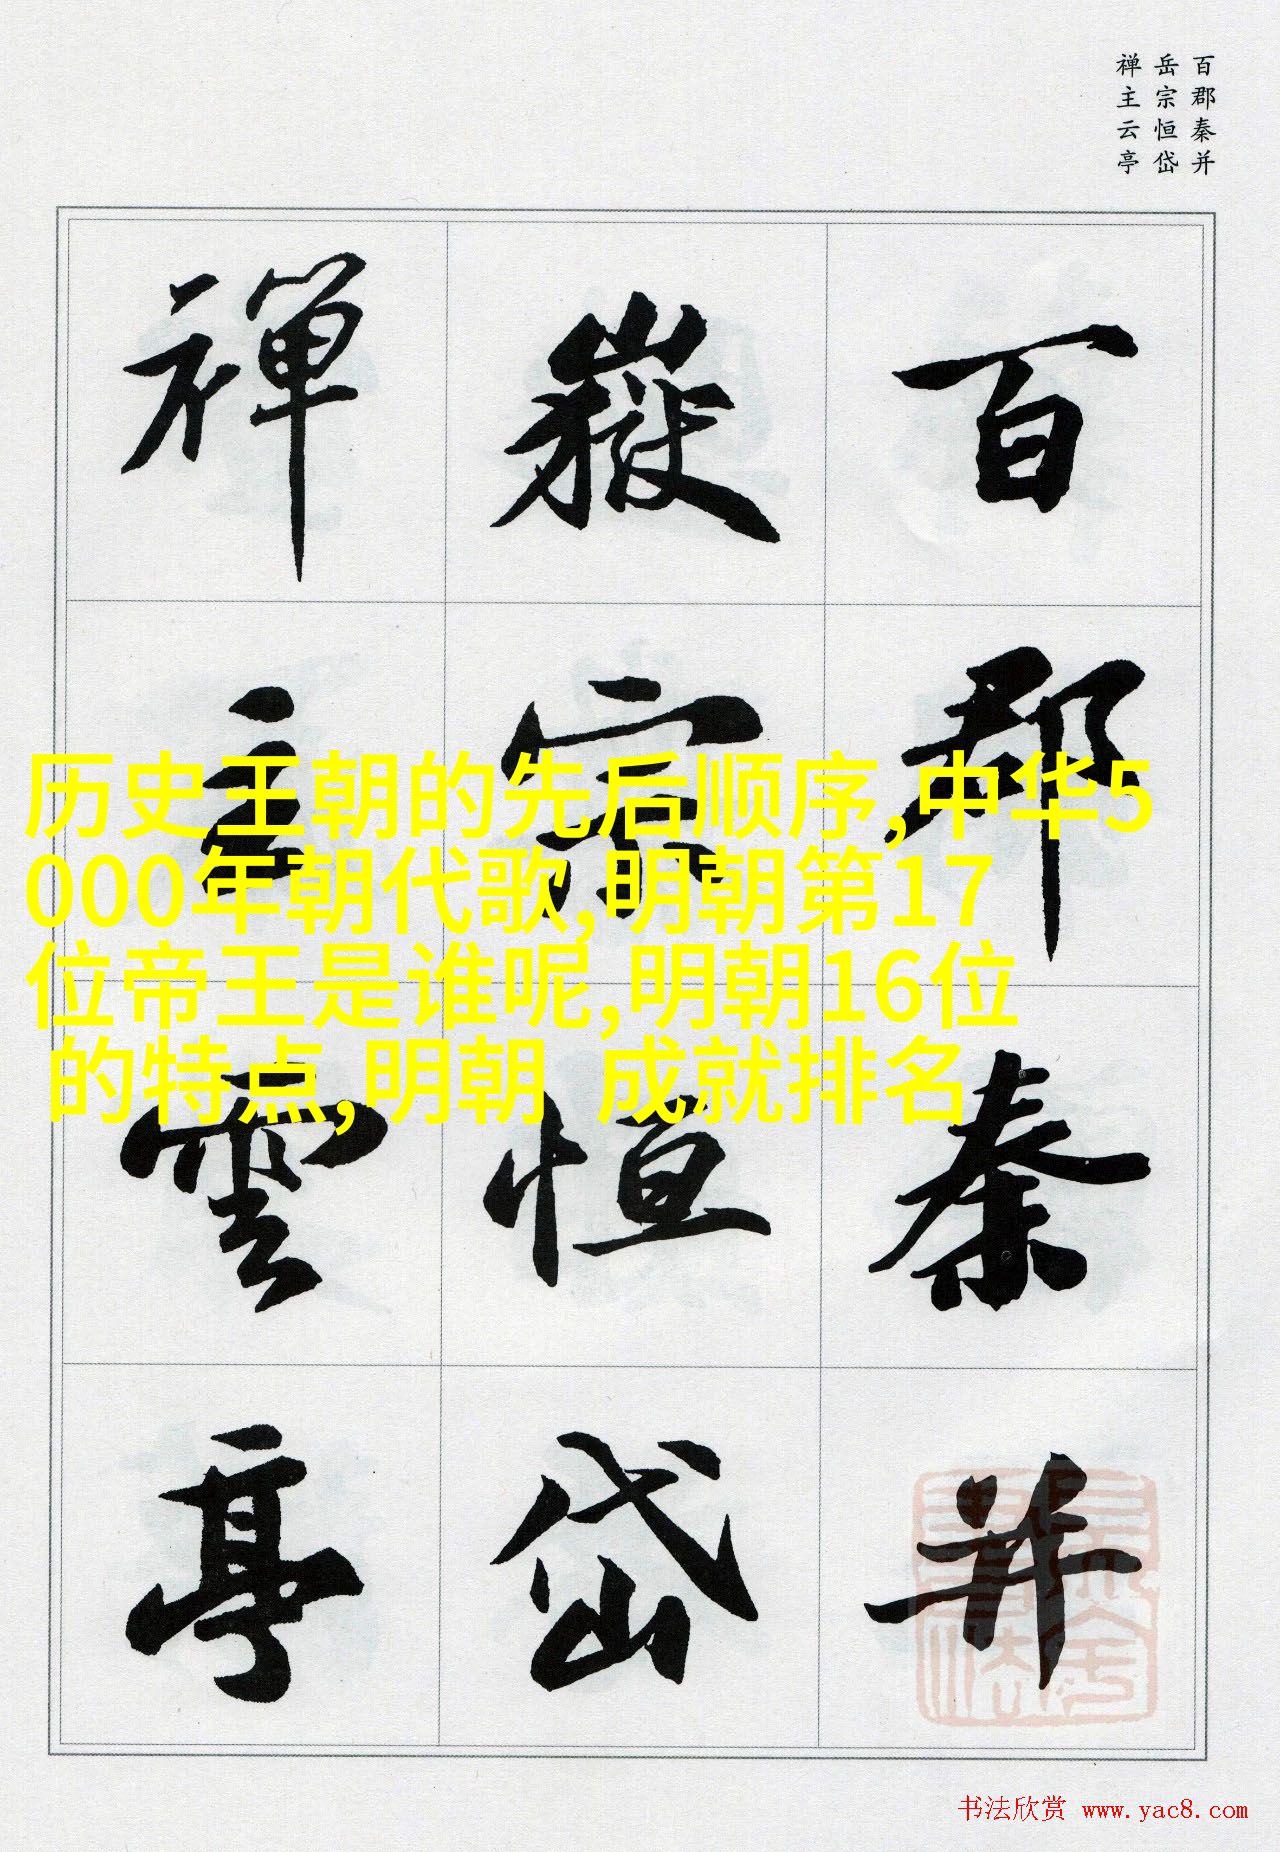 百郡秦并
岳宗恒岱
禅主云亭
百郡秦并
嶽宗恒岱
禅主雲亭
历史王朝的先后顺序,中华5
000年朝代歌,明朝第17
位帝王是谁呢,明朝16位
的特点,明朝 成就排名
书法欣赏 www.yac8.com